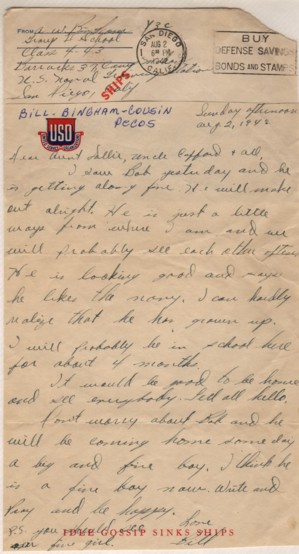 FROM A. W. Bingham
Group I School
Class 4-43
Barracks
U.S. Naval Training Station
San Diego, Calif
Y3C
SAN DIEGO
AUG 2
6 PM
1942
CALIF.
BUY
DEFENSE SAVINGS
BONDS AND STAMPS
SHIPS
BILL-BINGHAM-COUSIN
PECOS
USO
Sunday afternoon
Aug 2, 1942
Dear Aunt Sallie, Uncle & all,
I saw Bob yesterday and he
is getting along fine. He will make
out alright. He is just a little
ways from where I am and we
will probably see each other often.
He is looking good and says
he likes the navy. I can hardly
realize that he has grown up.
I will probably be in school here
for about 4 months.
It would be good to be home
and see everybody. Tell all hello.
Don't worry about Bob and he
will be coming home some day
a big and fine boy. I think he
is a fine boy now. Write and
Pray and be happy.
Love
Bill
P.S. you should see
our fine girl.
IDLE GOSSIP SINKS SHIPS